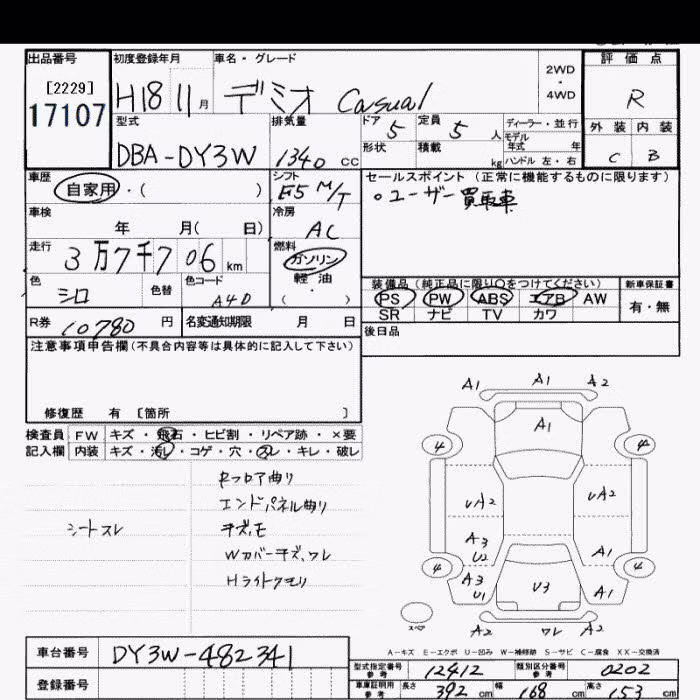 出品番号 初度登録年月 車名・グレード 評価点
[2229]
17107
H18 11月 デミオ Casual
2WD
・
4WD
R
型式 排気量 ドア 定員 ディーラー・並行
DBA-DY3W 1340 cc 5 5 人
モデル年式 年
形状 積載 kg ハンドル 左・右
外装 内装
C B
車歴 シフト セールスポイント (正常に機能するものに限ります)
自家用・( ) F5 M/T
。ユーザー買取車
車検 冷房
年 月( 日) AC
走行 燃料
3万7千706 km ガソリン
軽・油
( )
色 色替 色コード
シロ A4D
装備品 (純正品に限り○をつけてください) 新車保証書
PS PW ABS エアB AW 有・無
SR ナビ TV カワ
R券 10780 円 名変通知期限 月 日
後日品
注意事項申告欄 (不具合内容等は具体的に記入して下さい)
修復歴 有 〔箇所 〕
検査員 FW キズ・飛石・ヒビ割・リペア跡・×要
記入欄 内装 キズ・汚レ・コゲ・穴・スレ・キレ・破レ
Rフロア曲り
エンドパネル曲り
シートスレ
キズ,モ
Wカバーキズ,ワレ
Hライトクモリ
A1 A1 A2
A1
4 4
UA2 UA2
A3
U2
A1
4 4
A3
U1
U3
A1
スペア
A2 ワレ A2
A-キズ E-エクボ U-凹み W-補修跡 S-サビ C-腐食 XX-交換済
車台番号 DY3W-482341
登録番号
型式指定番号 参考 12412 類別区分番号 参考 0202
車庫証明用 参考 長さ 392 cm 幅 168 cm 高さ 153 cm